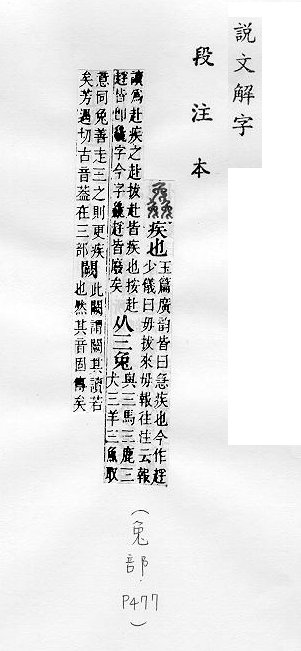 說文解字
段注本
疾也
玉篇廣韵皆曰急疾也今作䞯
少儀曰毋拔來毋報往注云報
讀爲赴疾之赴拔赴皆疾也按赴
䞯皆卽𠓗字今字𠓗䞯皆廢矣
从三兔
與三馬三鹿三
犬三羊三魚取
意同兔善走三之則更疾
矣芳遇切古音葢在三部
闕
此闕謂闕其讀若
也然其音固傳矣
（兔部 P477）